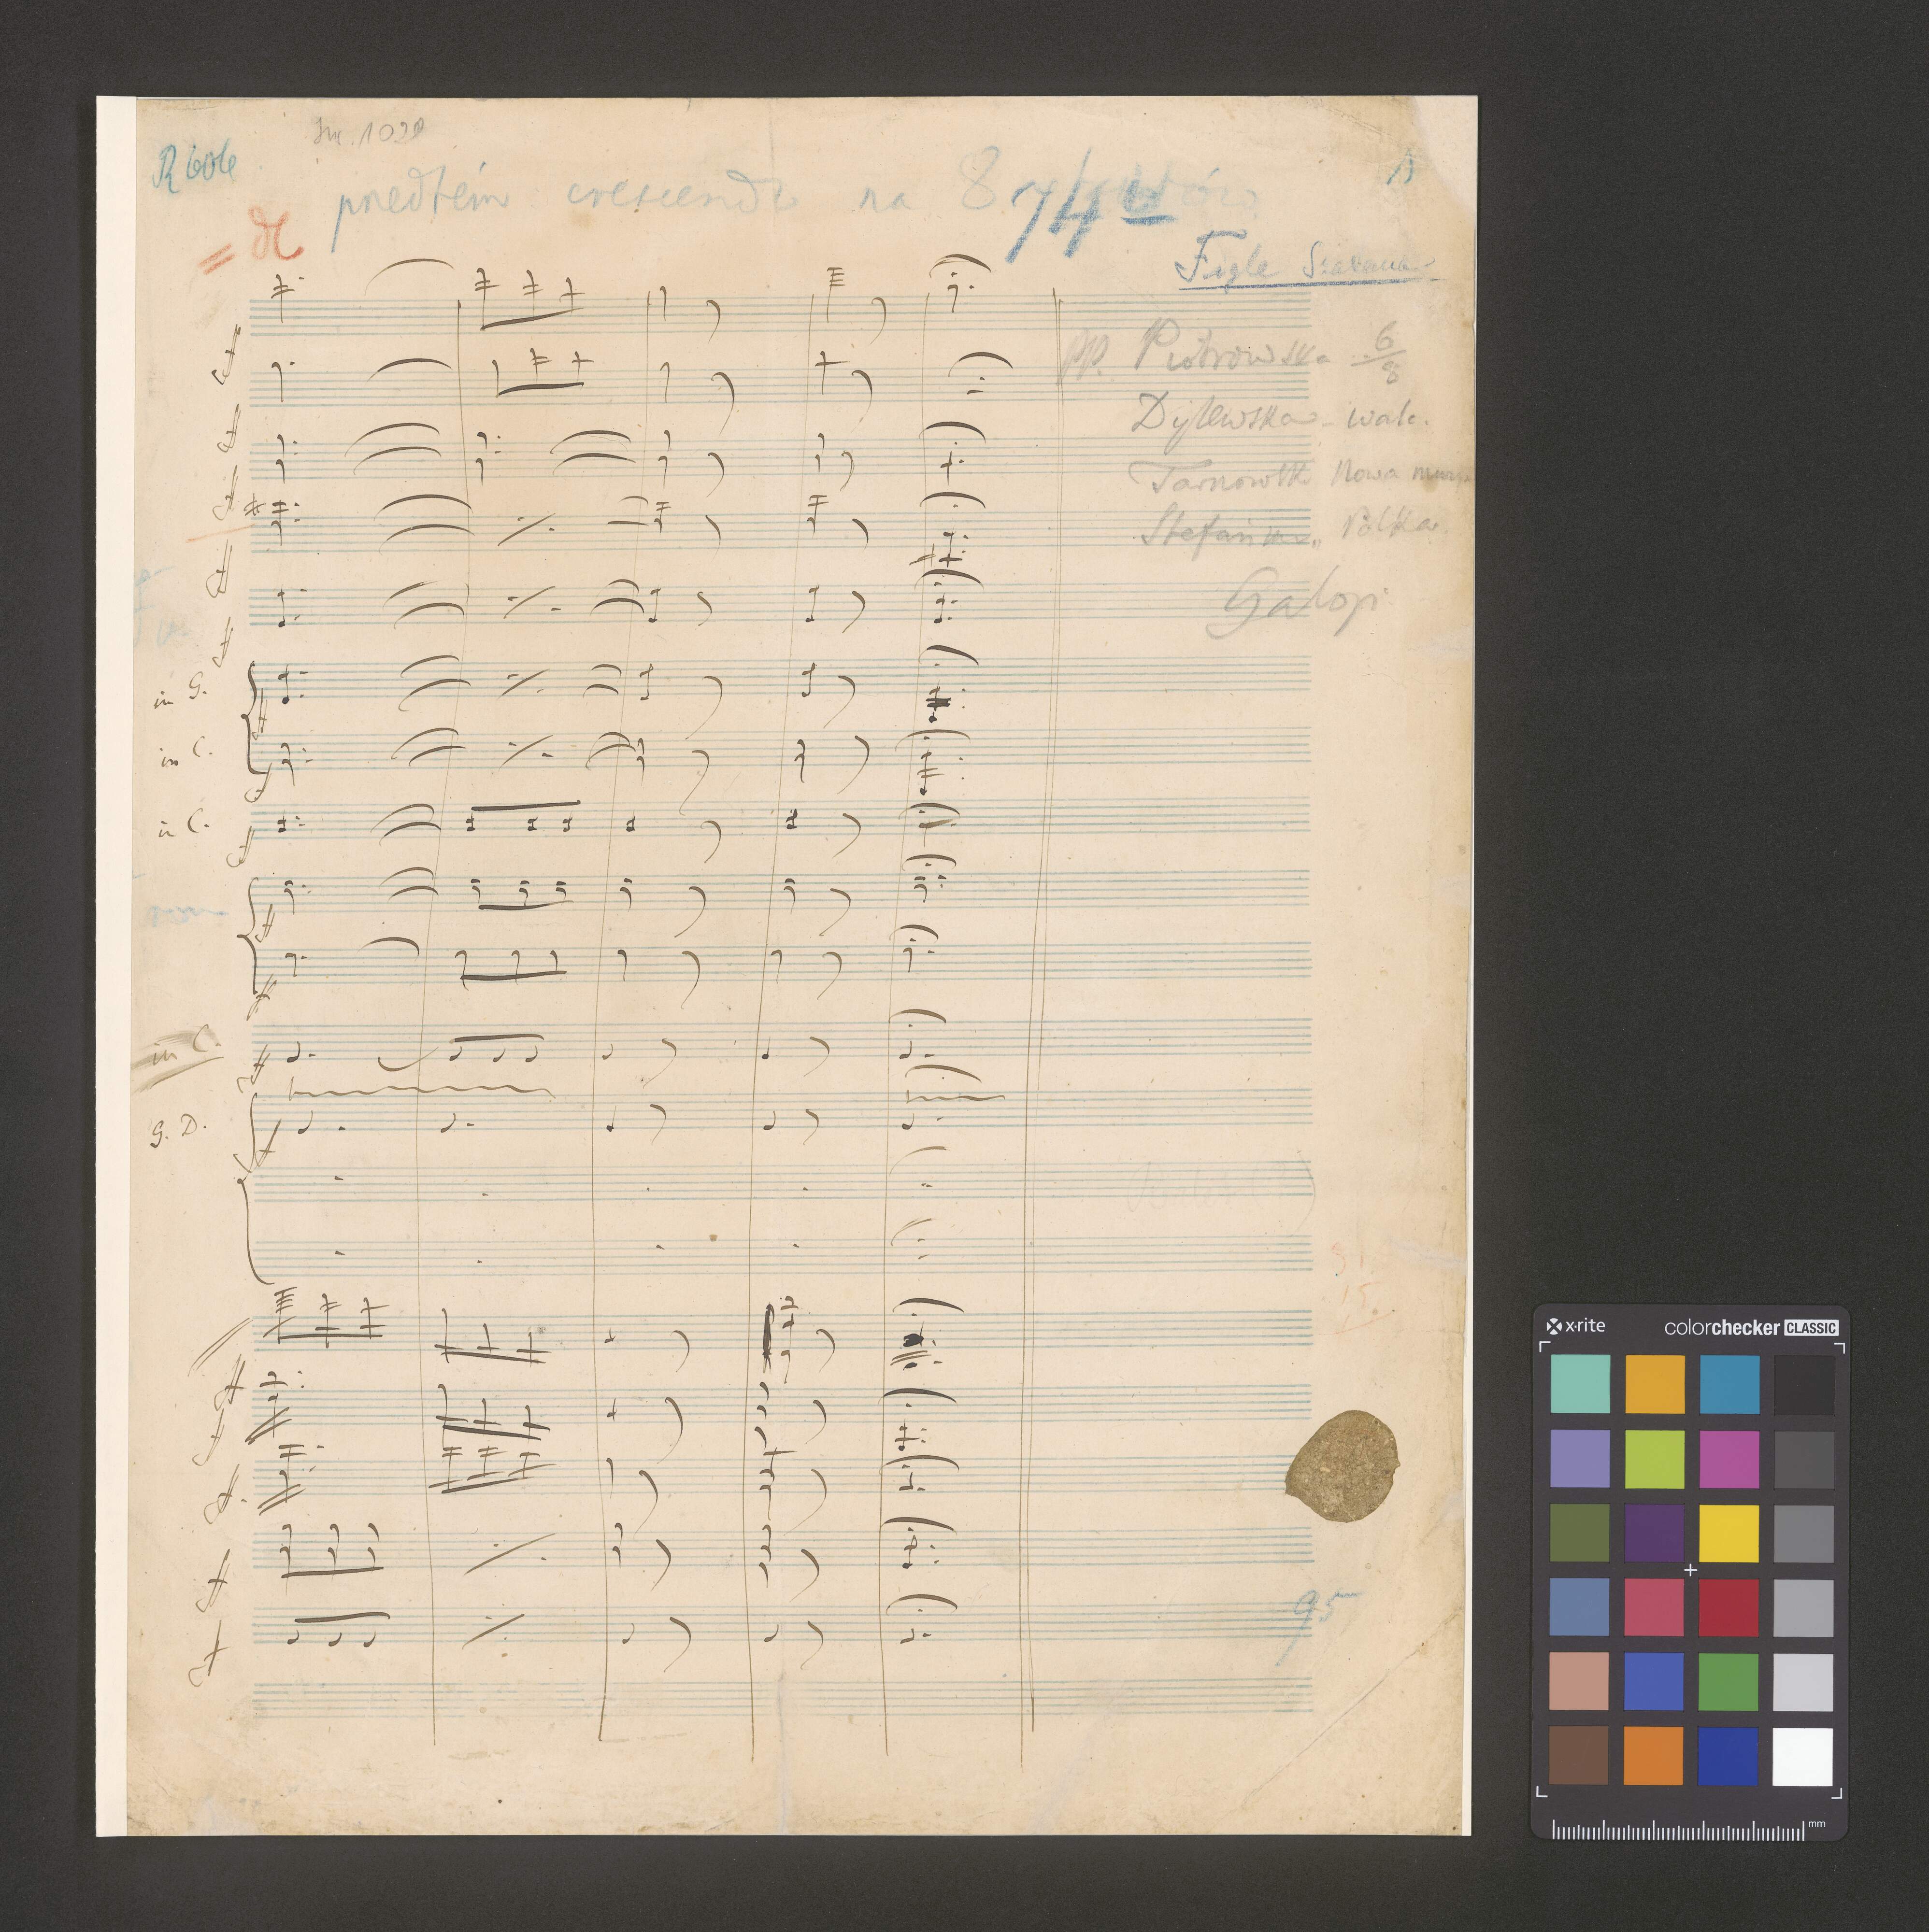 R 606
przedtém crescendo na 8
74
Figle Szatana
pp. Piotrowska 6/8
Dylewska - walc.
Tarnowski Nowa
Stefańska „ Polka
Galop
in G.
in C.
in C.
in C.
G. D.
95
x·rite colorchecker CLASSIC
mm